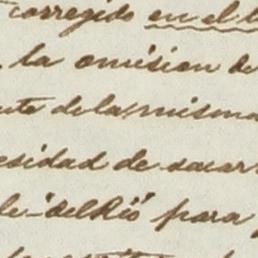 corregido en el l
la omision de
nte de la misma
esidad de sacar
le "del Rio" para